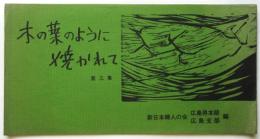 木の葉のように
焼かれて
第三集
新日本婦人の会 広島県本部 広島支部 編